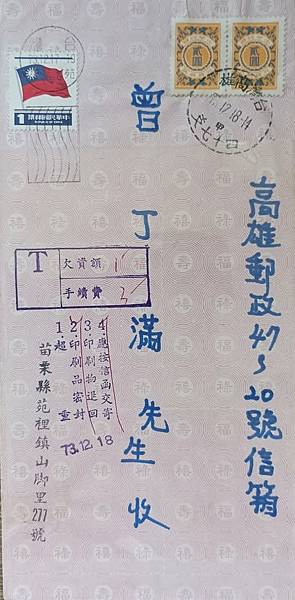 高雄郵政47~20號信箱
曾丁滿先生收
苗栗縣苑裡鎮山脚里277號
T
欠資額 1
手續費 3
1超重
2.印刷品密封
3.印刷物退回
4應按信函交寄
73.12.18
中華民國郵票
1
貳圓
貳圓